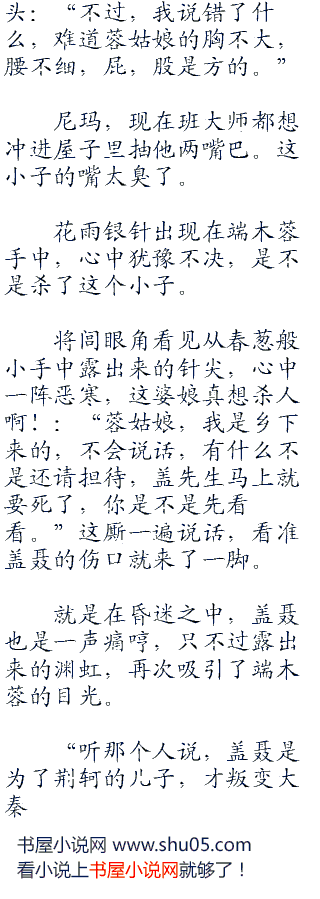 头：“不过，我说错了什
么，难道蓉姑娘的胸不大，
腰不细，屁，股是方的。”
尼玛，现在班大师都想
冲进屋子里抽他两嘴巴。这
小子的嘴太臭了。
花雨银针出现在端木蓉
手中，心中犹豫不决，是不
是杀了这个小子。
将闾眼角看见从春葱般
小手中露出来的针尖，心中
一阵恶寒，这婆娘真想杀人
啊！：“蓉姑娘，我是乡下
来的，不会说话，有什么不
是还请担待，盖先生马上就
要死了，你是不是先看
看。”这厮一遍说话，看准
盖聂的伤口就来了一脚。
就是在昏迷之中，盖聂
也是一声痛哼，只不过露出
来的渊虹，再次吸引了端木
蓉的目光。
“听那个人说，盖聂是
为了荆轲的儿子，才叛变大
秦
书屋小说网 www.shu05.com
看小说上书屋小说网就够了！